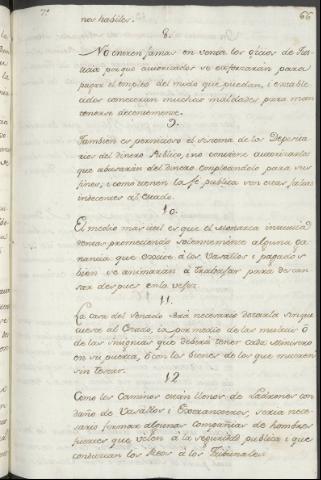 66
nos habiles.
8.
No entren jamas en venta los oficios de Jus-
ticia porque autorizados se esforzarán para
pagar el empleo del modo que puedan, i entable
cidos cometeran muchas maldades para man
tenerse decentemente.
9.
Tambien es pernicioso el sistema de los Deposita
rios del dinero Publico, i no conviene autorizarlos
que abusarán del dinero empleandolo para sus
fines, i como tienen la fé publica son estas faltas
indecentes al Estado.
10.
El medio mas util es que el Monarca
prometiendo solennemente alguna ga
nancia que toque à los Vasallos i pagados
bien se animaràn à trabajar para descan
sar despues en la vejez.
11.
La casa del Senado serà necesario dotarla sin que
cueste al Estado, ia por medio de las multas ó
de las insignias que deberá tener cada Ministro
en su puerta, ó con los bienes de los que mueren
sin testar.
12
Como los Caminos están llenos de Ladrones con
daño de Vasallos i Extrangeros, seria nece-
sario formar algunas compañias de hombres
fuertes que velen à la seguridad publica i que
conduzcan los Reos à los Tribunales.